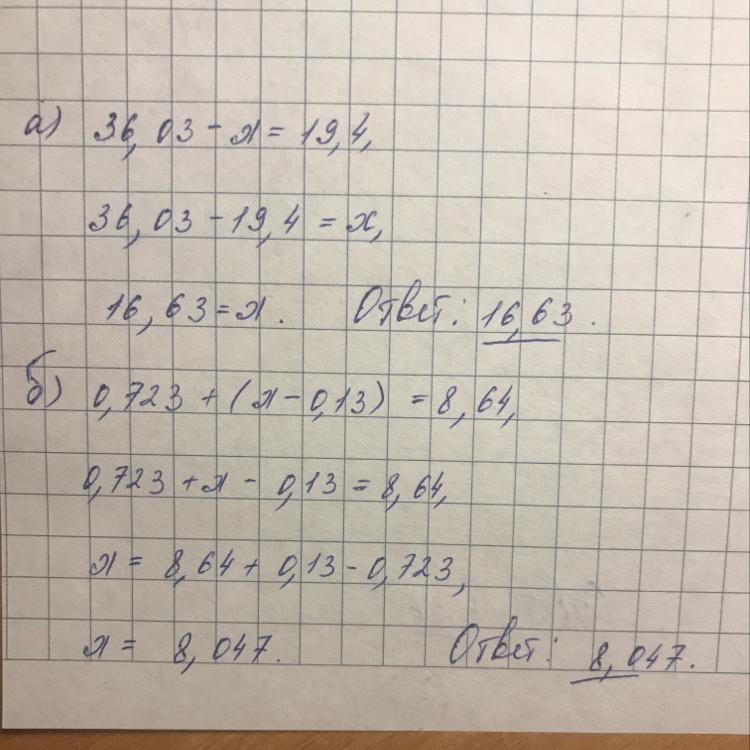 а) 36,03 - x = 19,4,
36,03 - 19,4 = x,
16,63 = x. Ответ: 16,63.
б) 0,723 + (x - 0,13) = 8,64,
0,723 + x - 0,13 = 8,64,
x = 8,64 + 0,13 - 0,723,
x = 8,047. Ответ: 8,047.